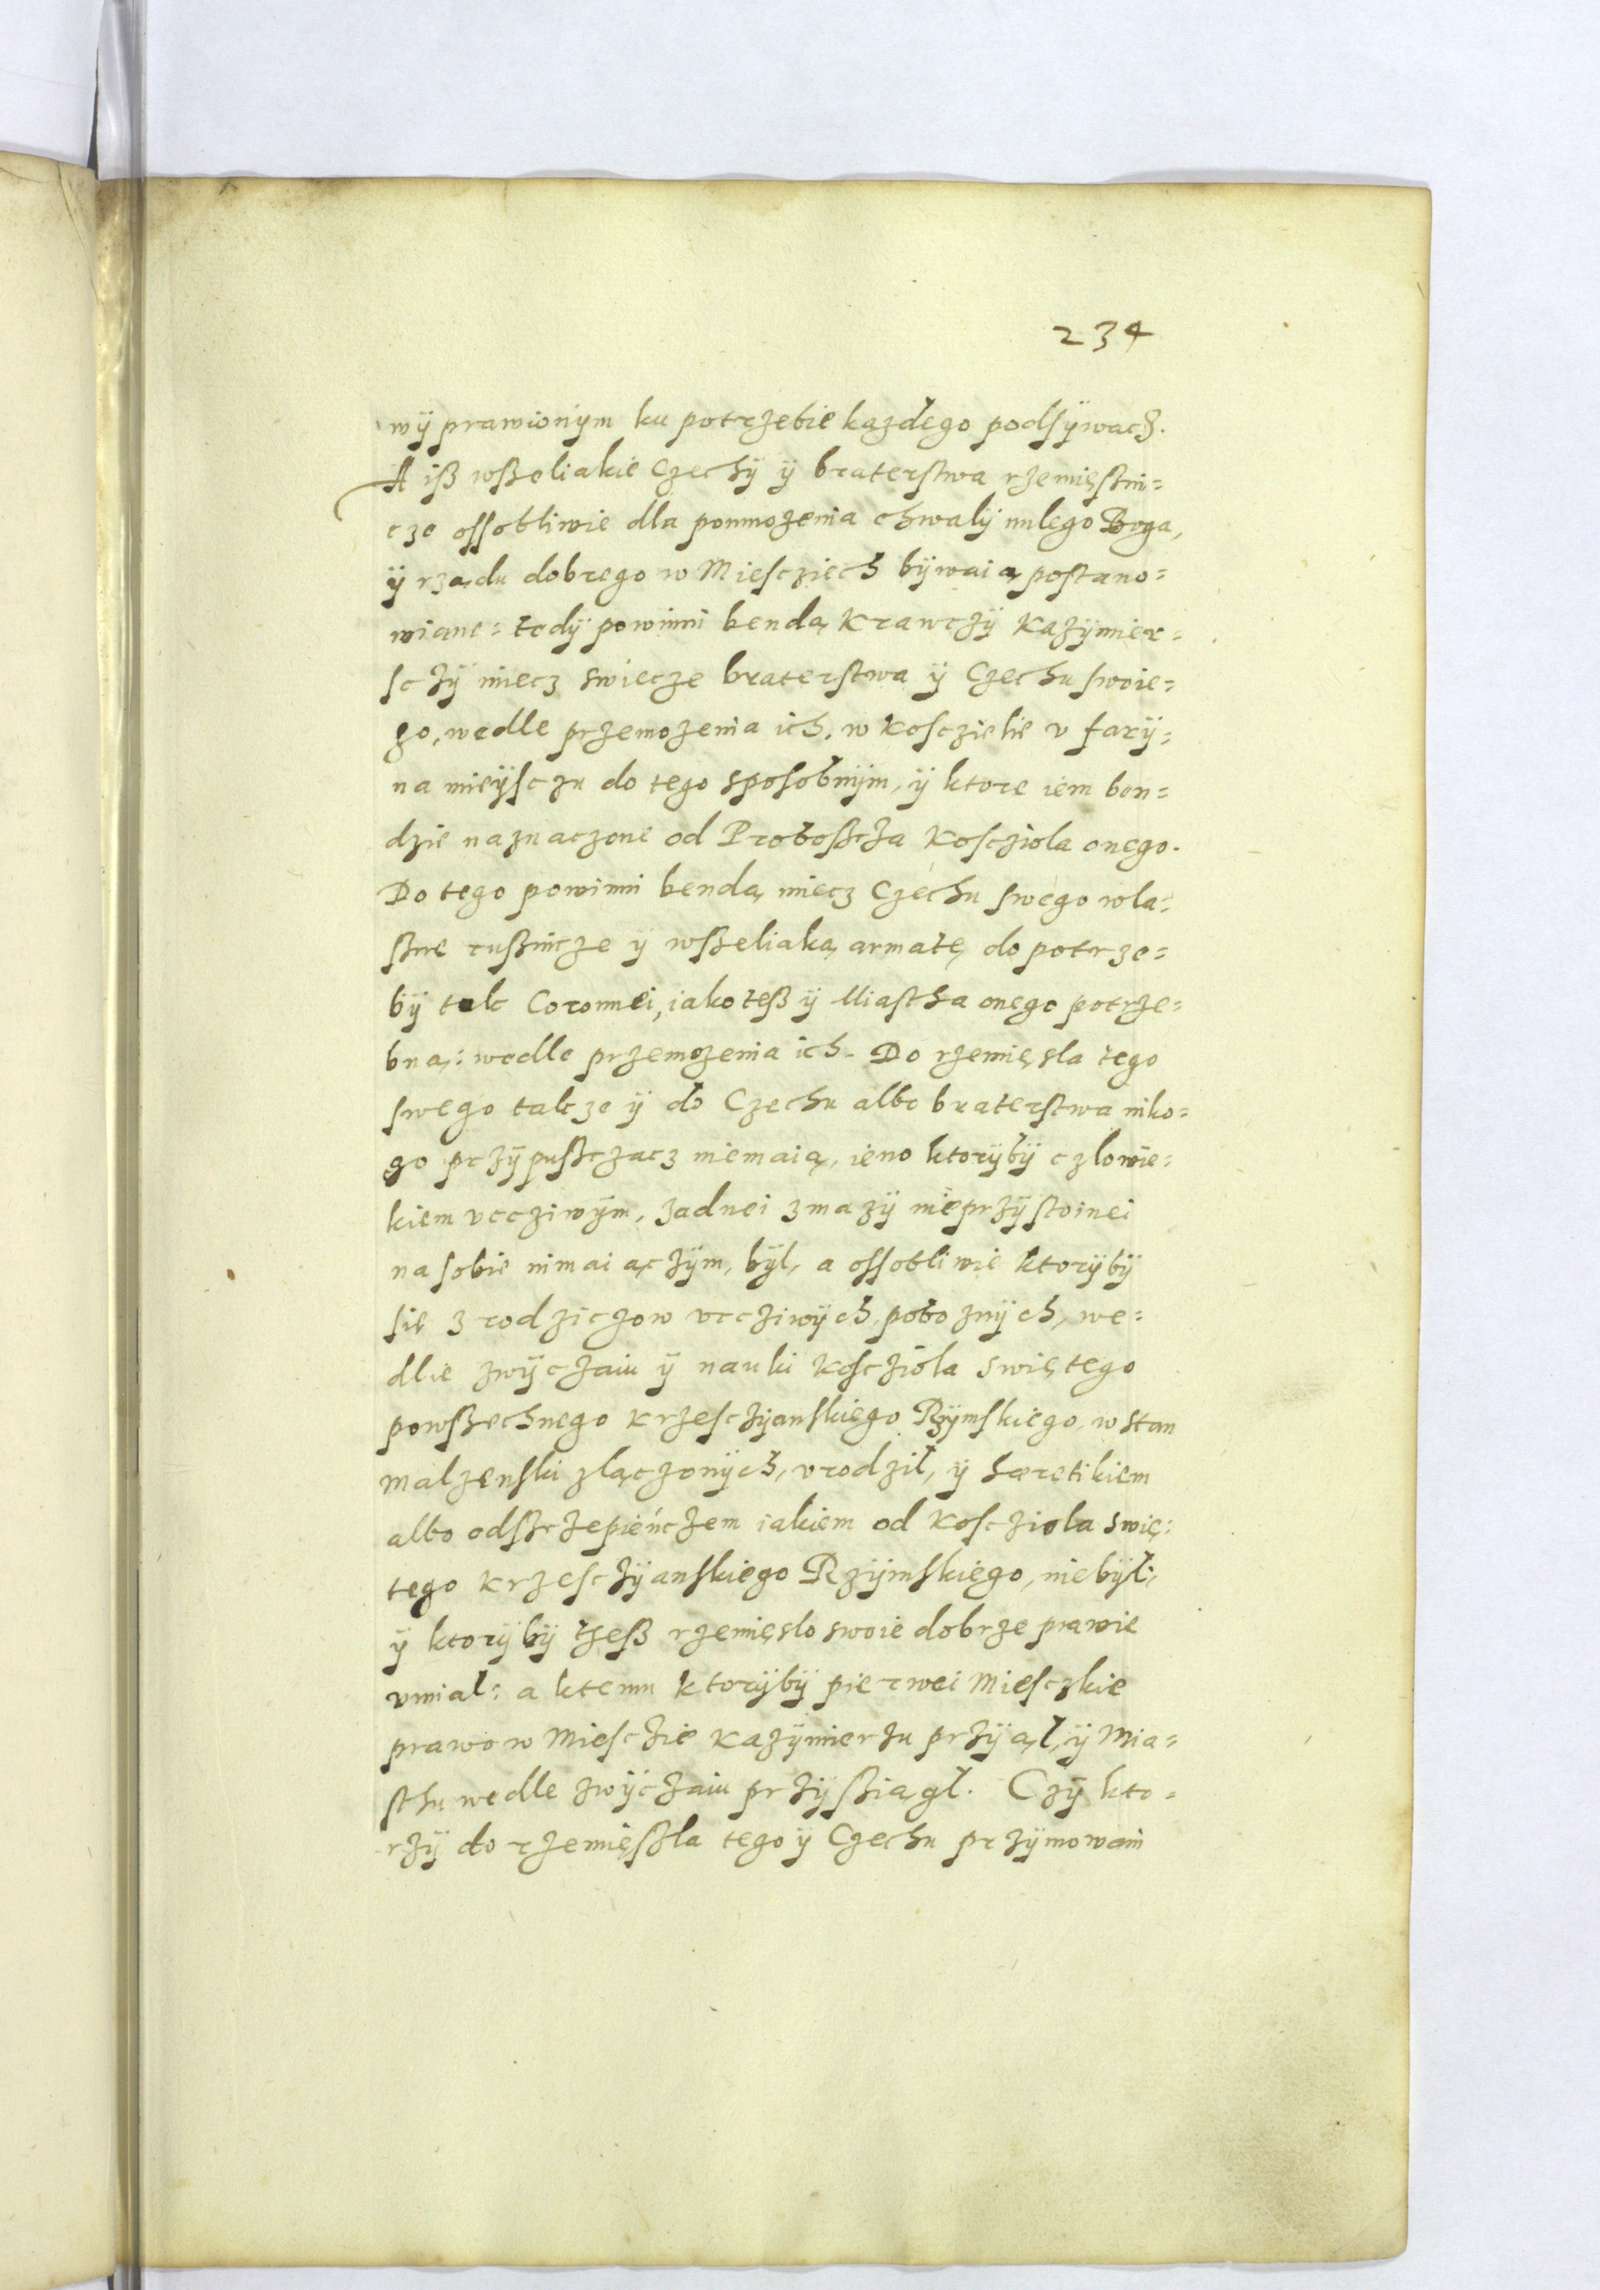 234
wÿprawionÿm ku potrzebie każdego podsÿwacz.
A iß wßeliakie Czechÿ ÿ braterstwa rzemięstni=
cze ossobliwie dla pomnożenia chwalÿ milego Boga,
ÿ rządu dobrego w Miescziech bÿwaią postano=
wiane: tedÿ powinni bendą Krawczÿ Kazÿmier=
sczÿ miecz swiecze braterstwa ÿ Czechu swoie=
go, wedle przemożenia ich, w Kosczieĺie v farÿ=
na mieÿsczu do tego sposobnÿm, ÿ ktore iem ben=
dzie naznaczone od Proboßcża Kosczioła onego.
Do tego powinni bendą miecz Czechu swego wla=
ßne rußnicze ÿ wßeliaką armatę do potrze=
bÿ tak Coronnei, iako teß ÿ Miastha onego potrze=
bną: wedle przemożenia ich. Do rzemięsla tego
swego takze ÿ do Czechu albo braterstwa niko=
go przÿpußczacz niemaią, ieno ktorÿbÿ czlowie=
kiem vccziwÿm, zadnei zmazÿ nieprzÿstoinei
na sobie nimaiączÿm, bÿl, a ossobliwie ktorÿbÿ
się z rodziczow vccziwÿch, pobożnÿch, we=
dlie zwÿczaiu ÿ nauki Kosczioła swiętego
powßechnego krzesczÿanskiego Rzÿmskiego, w stan
malzenski złączonÿch, vrodził, ÿ hæretikiem
albo odßczepieńczem iakiem od Kosczioła swię=
tego krzesczÿanskiego Rzÿmskiego, niebÿł:
ÿ ktorÿbÿ tzeß rzemięslo swoie dobrze prawie
vmial: a ktemu ktorÿbÿ pierwei Miesczkie
prawo w Miesczie Kazÿmierzu przÿiął, ÿ Mia=
sthu wedle zwÿczaiu przÿßiągł. Czÿ kto=
rzÿ do rzemięßla tego ÿ Czechu przÿmowani